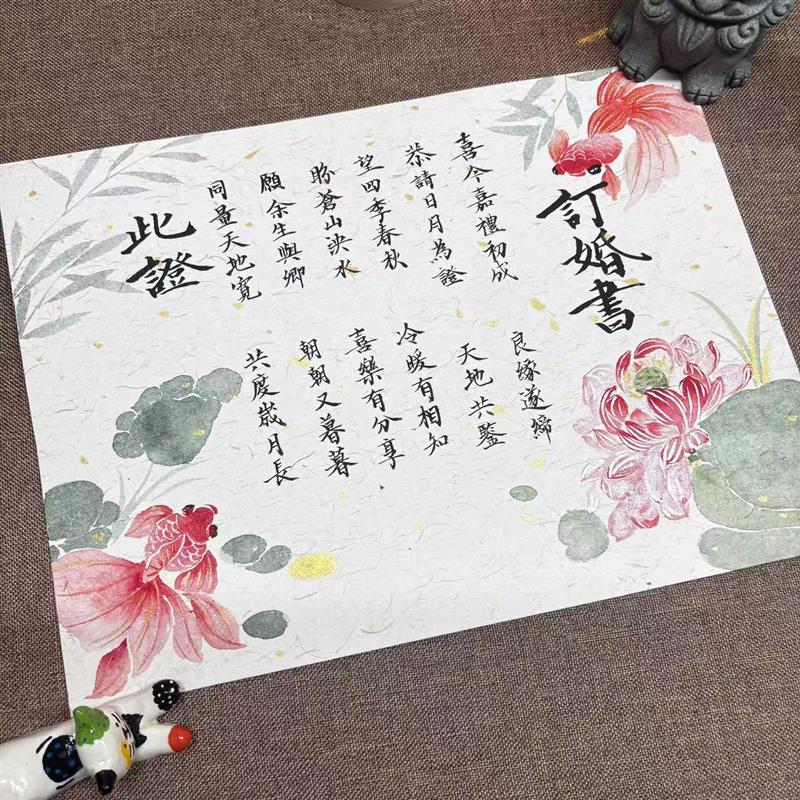 訂婚書
喜今嘉禮初成
良緣遂締
恭請日月為證
天地共鑒
望四季春秋
冷暖有相知
盼蒼山泱水
喜樂有分享
願余生與卿
朝朝又暮暮
同量天地寬
共度歲月長
此證